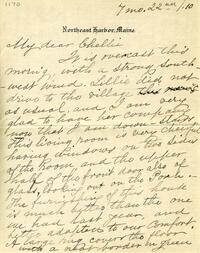 1170
7 mo. 22nd /10
Northeast Harbor, Maine
My dear Chellie
It is overcast this
morn'g, with a strong South
west wind. Lillie did not
drive to the village this morn'g
as usual, and I am very
glad to have her company
now that I am down stairs
This living room is very cheerful
having windows on two sides
of the room and the upper
half of the front door also of
glass, looking out on the Porch.
The furnishing of this house
is much better than the one
we had last year, and
adapted to our comfort.
A large rug covers the
with a plant border in green